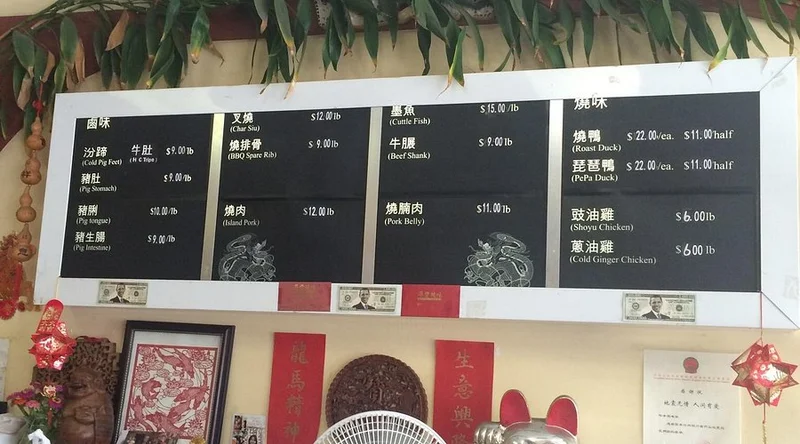 鹵味
汾蹄 牛肚 $9.00/lb
(Cold Pig Feet) (H C Tripe)
豬肚 $9.00/lb
(Pig Stomach)
豬脷 $10.00/lb
(Pig tongue)
豬生腸 $9.00/lb
(Pig Intestine)
叉燒 $12.00lb
(Char Siu)
燒排骨 $9.00lb
(BBQ Spare Rib)
燒肉 $12.00lb
(Island Pork)
墨魚 $15.00/lb
(Cuttle Fish)
牛𦟌 $9.00lb
(Beef Shank)
燒腩肉 $11.00lb
(Pork Belly)
燒味
燒鴨 $22.00/ea. $11.00half
(Roast Duck)
琵琶鴨 $22.00/ea. $11.00half
(PePa Duck)
豉油雞 $6.00lb
(Shoyu Chicken)
蔥油雞 $6.00lb
(Cold Ginger Chicken)
龍馬精神
生意興隆